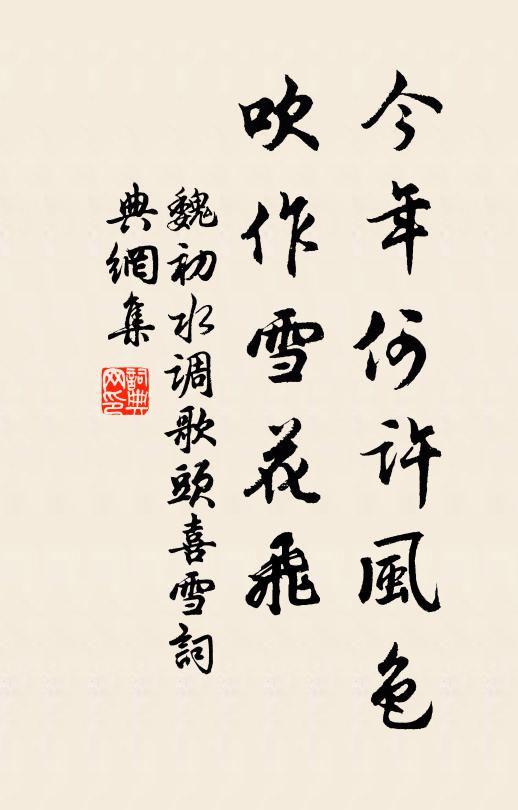 今年何许風色
吹作雪花飛
魏初水调歌頭喜雪詞
典網集
詞典网印